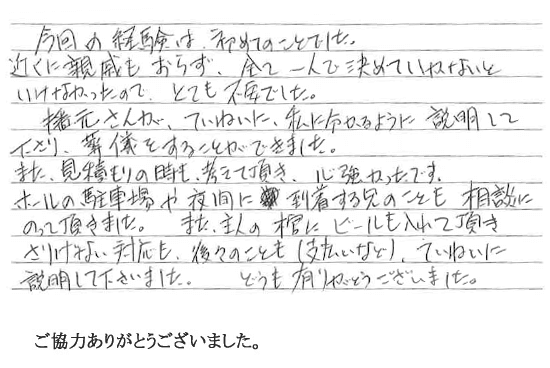 今回の経験は、初めてのことでした。
近くに親戚もおらず、全て一人で決めていかないと
いけなかったので、とても不安でした。
楮元さんが、ていねいに、私に分かるように説明して
下さり、葬儀をすることができました。
また、見積もりの時も、考えて頂き、心強かったです。
ホールの駐車場や夜間に到着する兄のことも相談に
のって頂きました。また、主人の棺にビールも入れて頂き
さりげない対応も、後々のことも(支払いなど)、ていねいに
説明して下さいました。どうも有りがとうございました。
ご協力ありがとうございました。